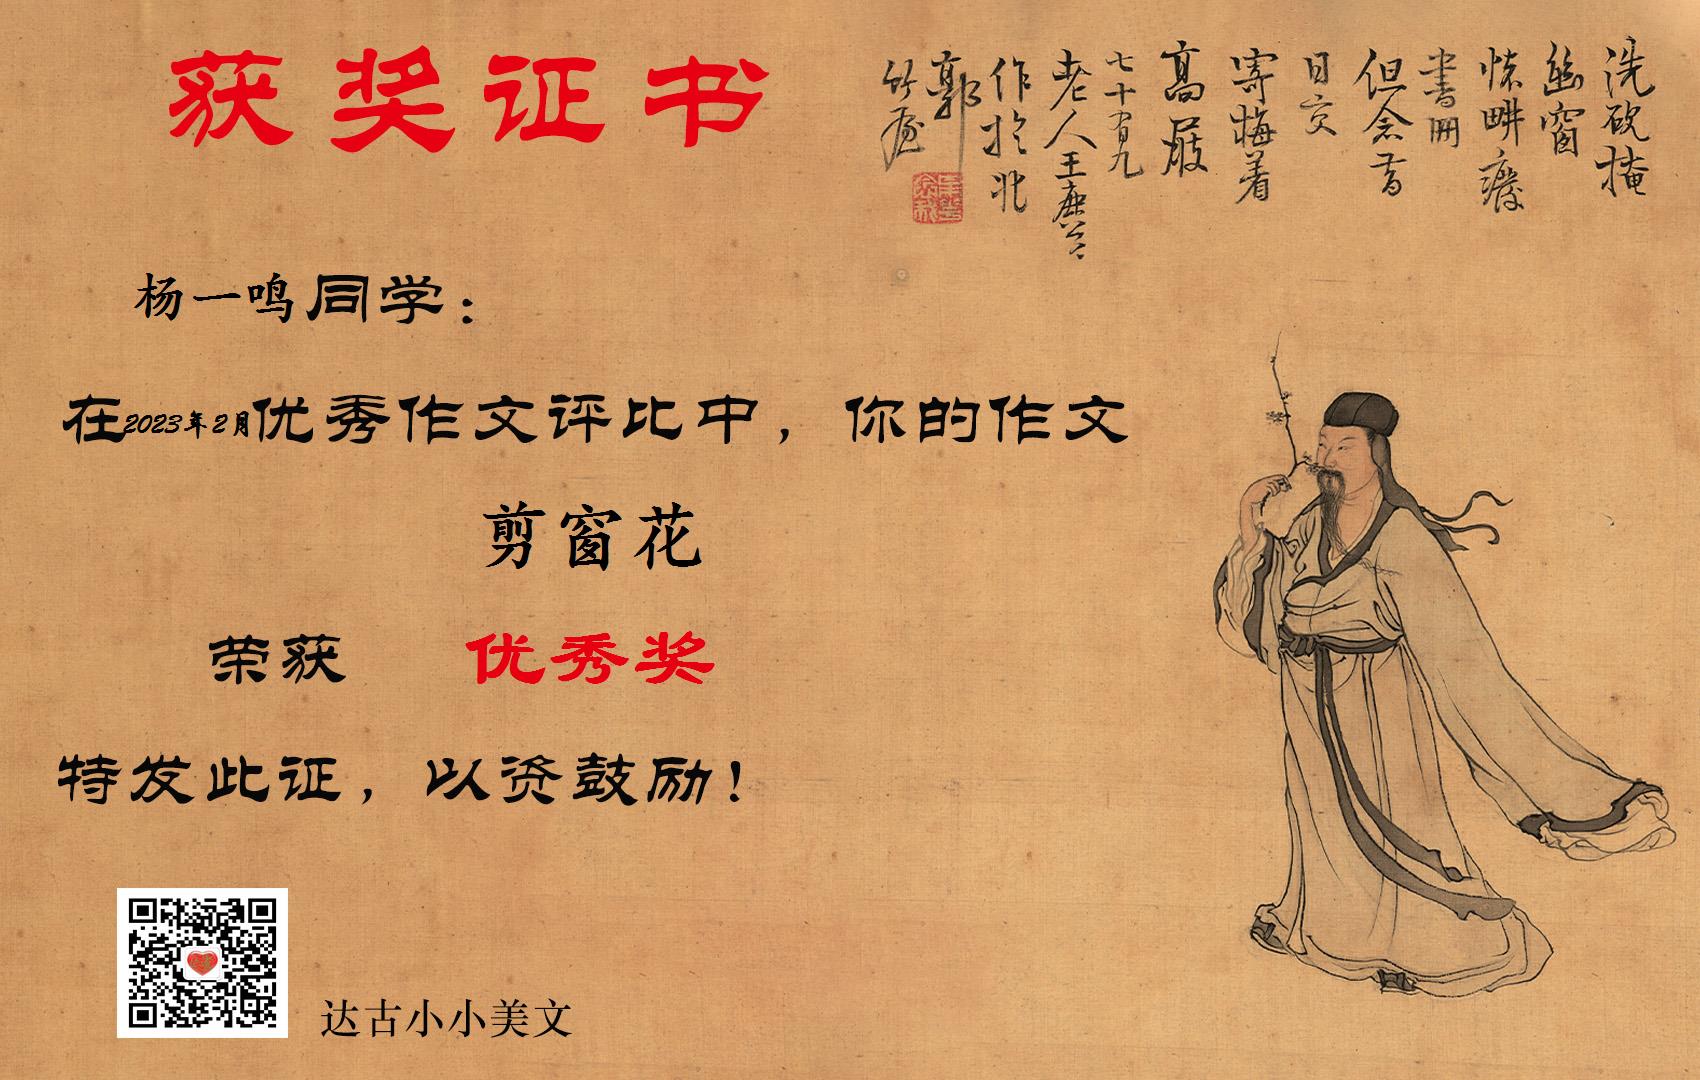 获奖证书
洗砚掩
幽窗
怀
书册
但念昔
日交
寄梅着
高
七十有九
老人王
作于北
郭
竹
杨一鸣同学：
在2023年2月优秀作文评比中，你的作文
剪窗花
荣获 优秀奖
特发此证，以资鼓励！
达古小小美文